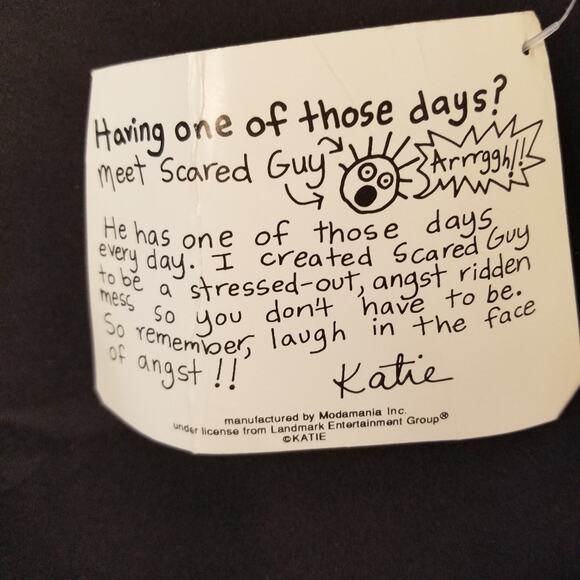 Having one of those days?
Meet Scared Guy
Arrrggh!!
He has one of those days
every day. I created Scared Guy
to be a stressed-out, angst ridden
mess so you don't have to be.
So remember, laugh in the face
of angst!!
Katie
manufactured by Modamania Inc.
under license from Landmark Entertainment Group®
©KATIE